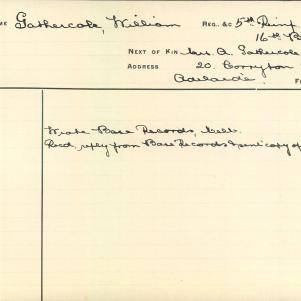 ME Gathercole, William REG. &C 5th Reinf
16th B
NEXT OF KIN Mrs. A. Gathercole
ADDRESS 20. Corryton
Adelaide. F
Wrote Base Records, Melb.
Recd. reply from Base Records & sent copy of